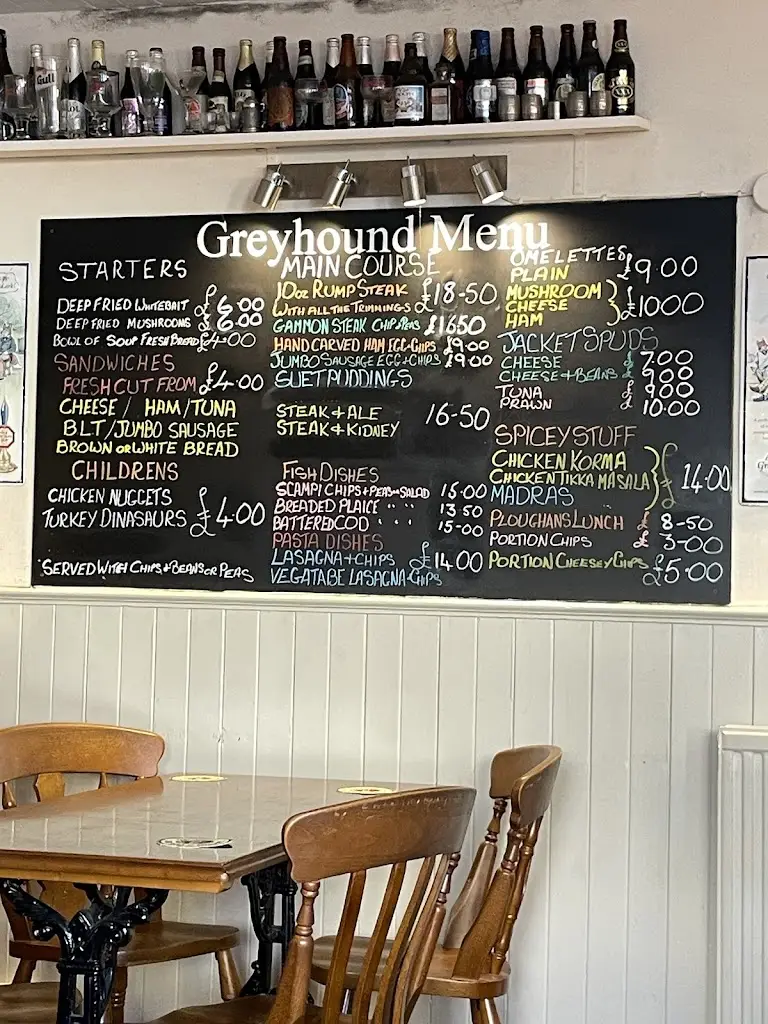 Greyhound Menu
STARTERS
DEEP FRIED WHITEBAIT £6.00
DEEP FRIED MUSHROOMS £6.00
BOWL OF SOUP FRESH BREAD £4.00
SANDWICHES
FRESH CUT FROM £4.00
CHEESE / HAM/TUNA
BLT/JUMBO SAUSAGE
BROWN OR WHITE BREAD
CHILDRENS
CHICKEN NUGGETS
TURKEY DINASAURS £4.00
*SERVED WITH CHIPS + BEANS OR PEAS
MAIN COURSE
10oz RUMP STEAK
WITH ALL THE TRIMNINGS £18-50
GAMMON STEAK CHIPS + PEAS £16.50
HAND CARVED HAM EGG + CHIPS £9.00
JUMBO SAUSAGE EGG + CHIPS £9.00
SUET PUDDINGS
STEAK + ALE 16-50
STEAK + KIDNEY
FISH DISHES
SCAMPI CHIPS + PEAS OR SALAD 15.00
BREADED PLAICE " " 13.50
BATTERED COD " " 15-00
PASTA DISHES
LASAGNA + CHIPS £14.00
VEGATABE LASAGNA + CHIPS
OMELETTES
PLAIN £9.00
MUSHROOM
CHEESE £10.00
HAM
JACKET SPUDS
CHEESE £7.00
CHEESE + BEANS £9.00
TUNA £9.00
PRAWN £10.00
SPICEY STUFF
CHICKEN KORMA
CHICKEN TIKKA MASALA £14.00
MADRAS
PLOUGHANS LUNCH £8-50
PORTION CHIPS £3-00
PORTION CHEESEY CHIPS £5.00